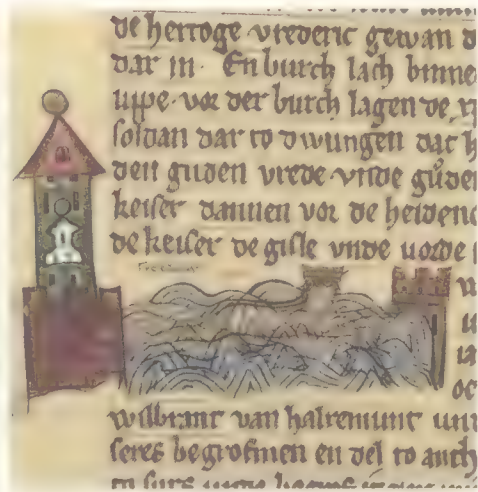 de hertoge vrederic gewan d
dar in · En burch lach binne
uppe · vor der burch lagen de
soldan dar to dwungen dat h
den guden vrede vnde gůde
keiser dannen vor de heiden
de keiser de gisle vnde vorde
w
u
oc
wilbrant van halremunt un
seres begrofmen en del to anth